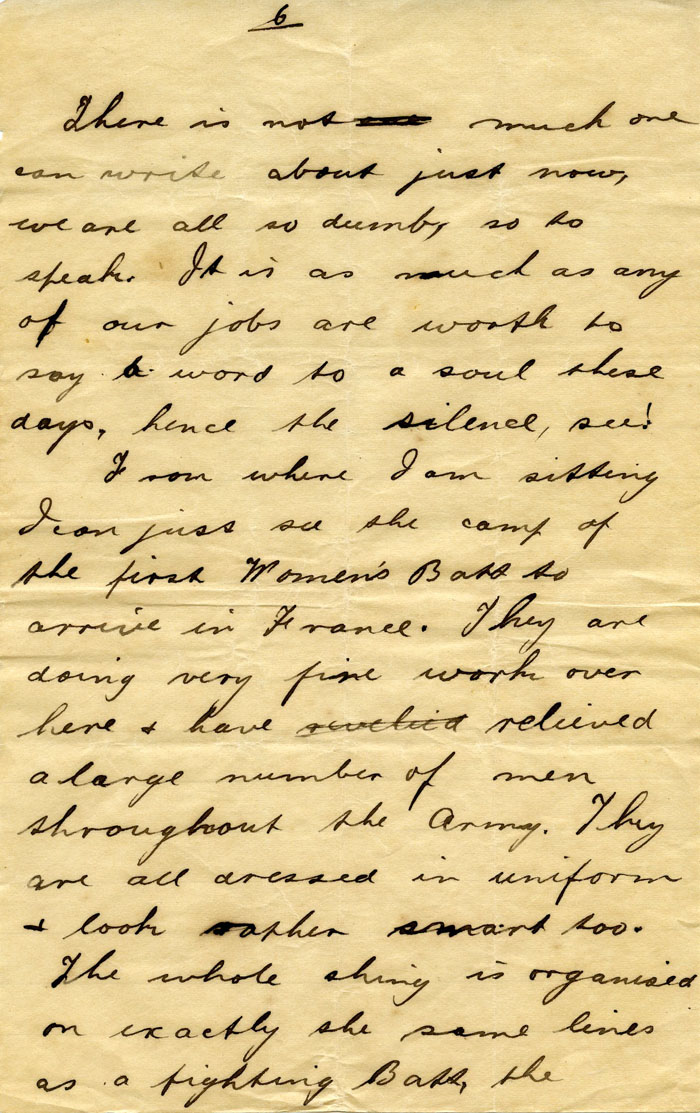 6
There is not much one
can write about just now,
we are all so dumb, so to
speak. It is as much as any
of our jobs are worth to
say a word to a soul these
days, hence the silence, see!
From where I am sitting
I can just see the camp of
the first Women's Batt to
arrive in France. They are
doing very fine work over
here & have relieved
a large number of men
throughout the Army. They
are all dressed in uniform
& look rather smart too.
The whole thing is organised
on exactly the same lines
as a fighting Batt, the